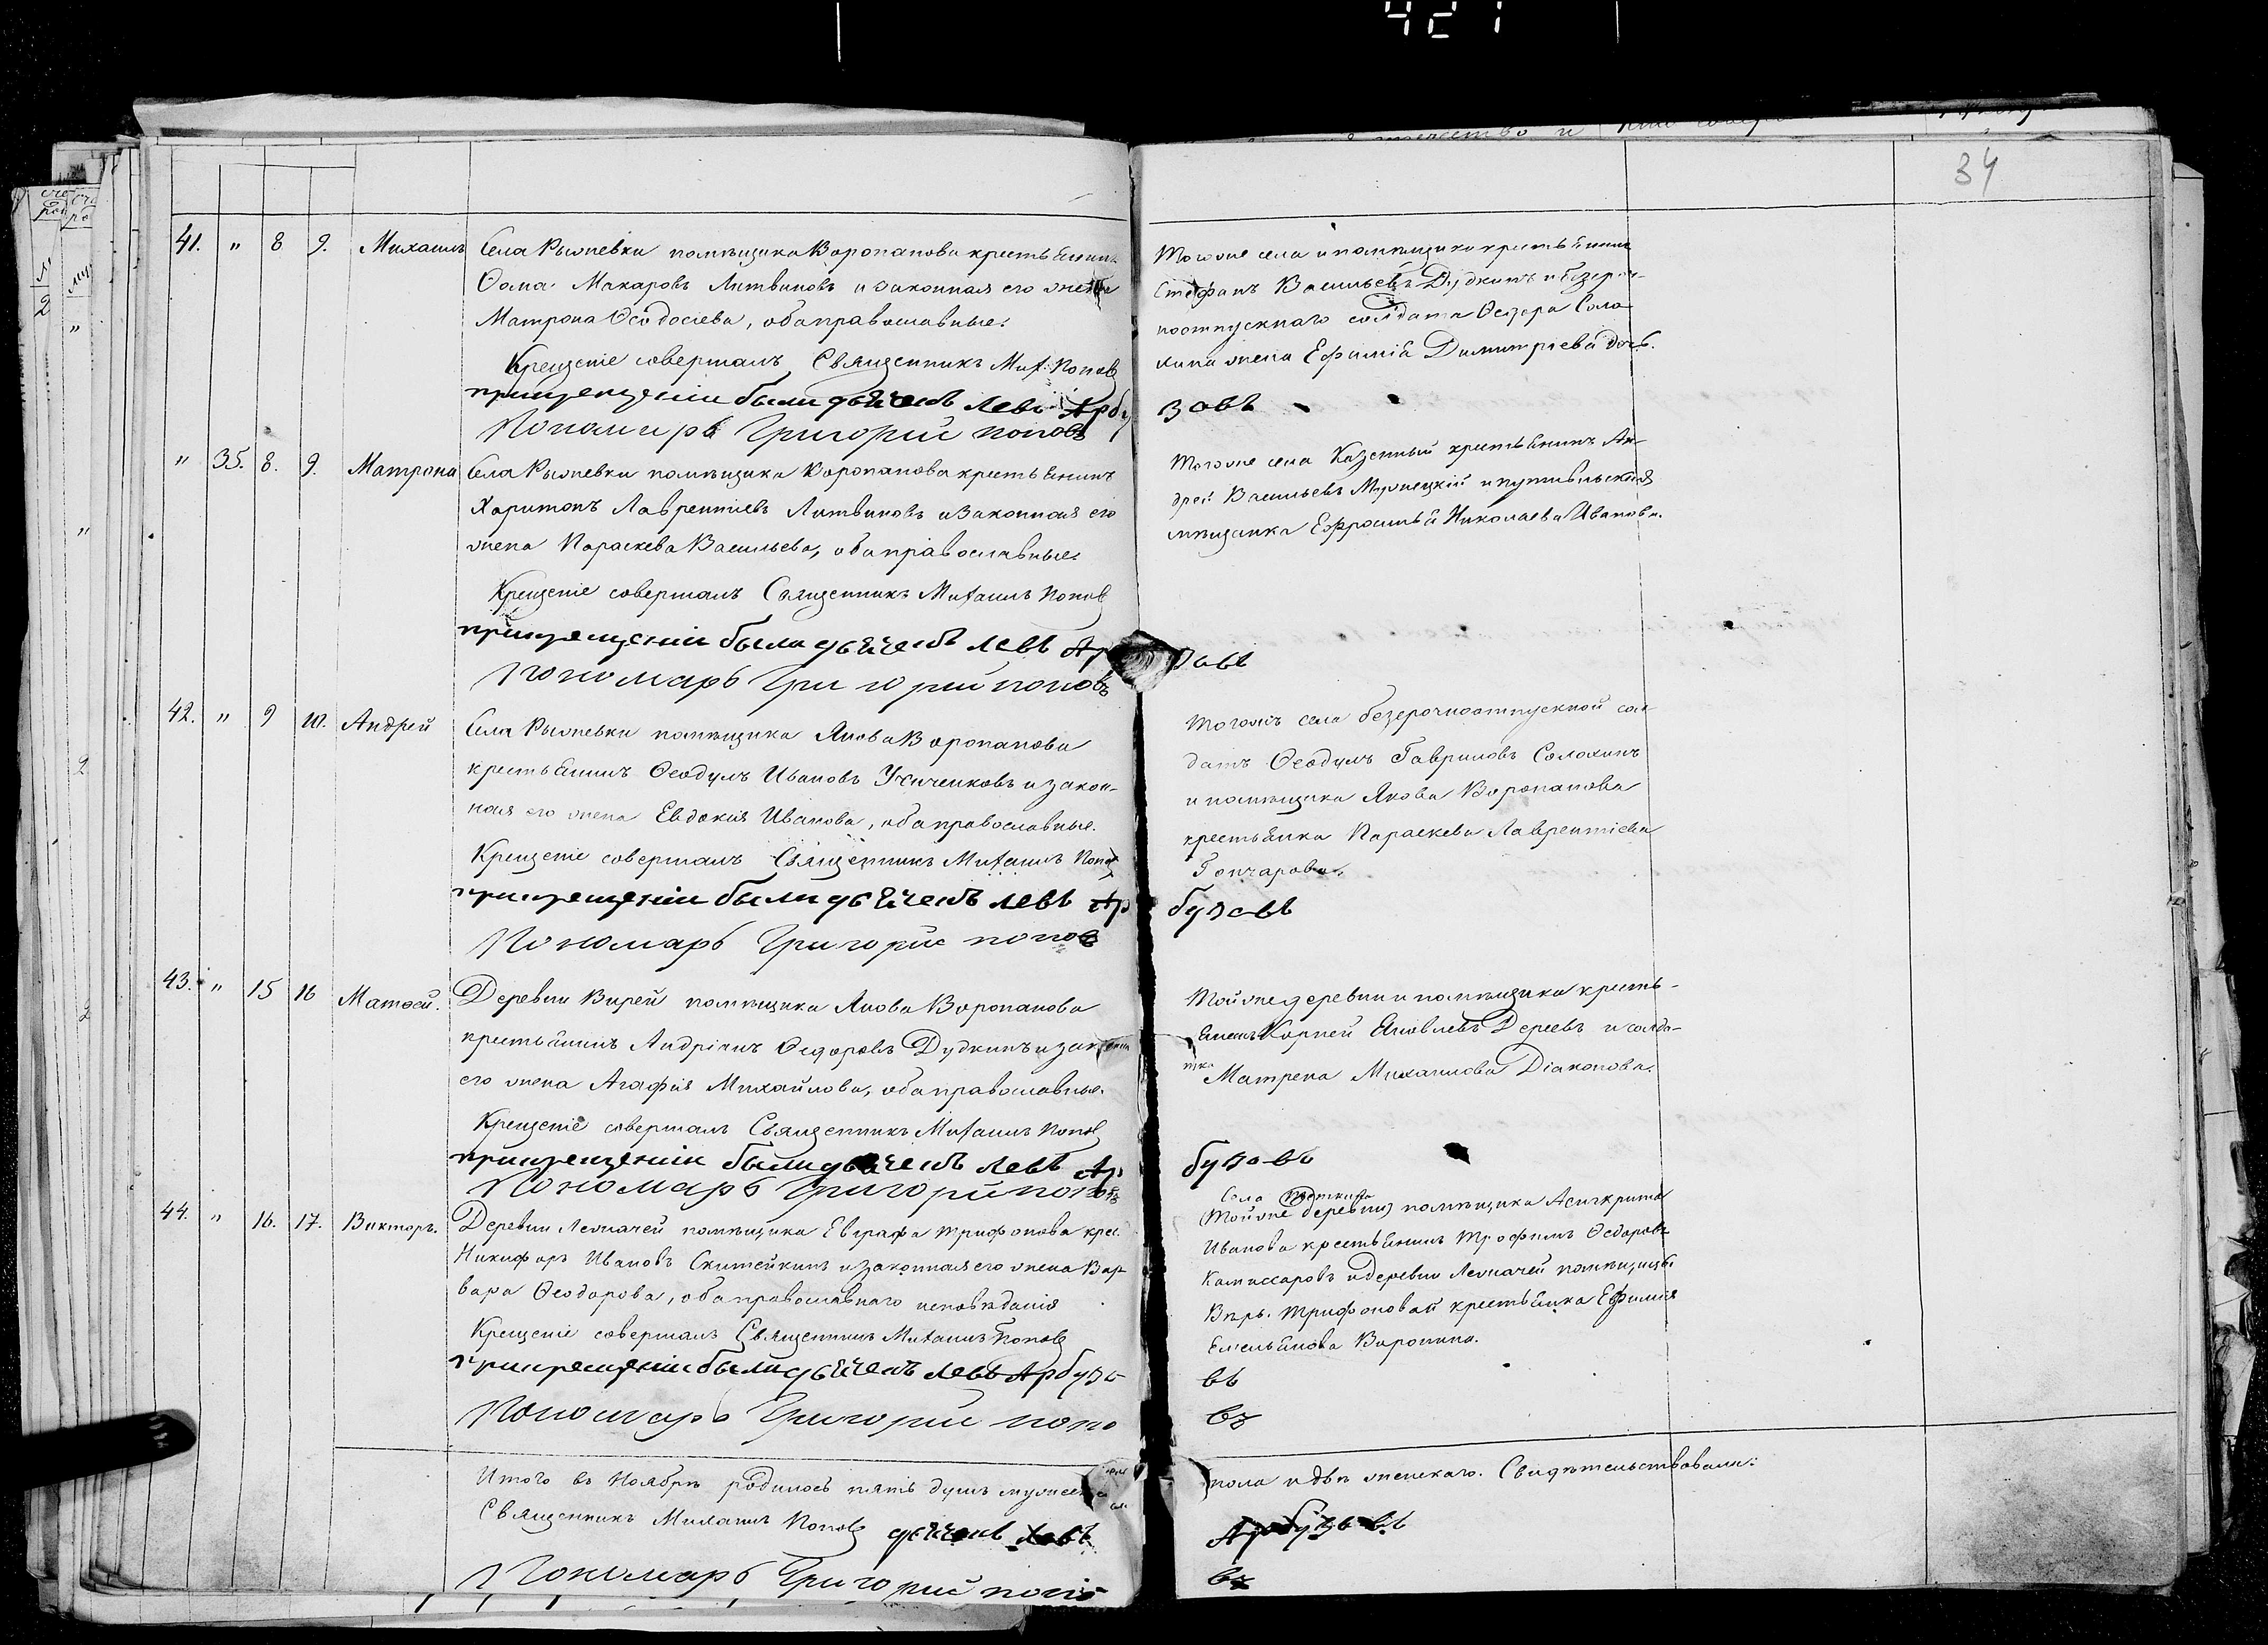 421
34
41. " 8 9. Михаилъ
Села Рыжевки помѣщика Воропанова крестьянинъ
Ѳома Макаровъ Литвиновъ и законная его жена
Матрона Ѳеодосіева, оба православные.
Крещеніе совершалъ Священникъ Мих. Поповъ
при крещеніи были дьячекъ Левъ Арбу
Пономарь Григорий Поповъ
Тогоже села и помѣщика крестьянинъ
Стефанъ Васильевъ Дудкинъ и безсроч-
ноотпускнаго солдата Ѳедора Соло-
хина жена Ефимія Димитріева дочь.
зовъ
" 35. 8. 9. Матрона
Села Рыжевки помѣщика Воропанова крестьянинъ
Харитонъ Лаврентіевъ Литвиновъ и законная его
жена Параскева Васильева, оба православные.
Крещеніе совершалъ Священникъ Михаилъ Поповъ
при крещеніи были дьячекъ Левъ Ар
Пономарь Григорий Поповъ
Тогоже села Казенный крестьянинъ Ан-
дрей Васильевъ и путивльская
мѣщанка Ефросинья Николаева Иванова.
зовъ
42. " 9 10. Андрей
Села Рыжевки помѣщика Якова Воропанова
крестьянинъ Ѳеодулъ Ивановъ и закон-
ная его жена Евдокія Иванова, оба православные.
Крещеніе совершалъ Священникъ Михаилъ Поповъ
при крещеніи были дьячекъ Левъ Ар
Пономарь Григорие Поповъ
Тогожъ села безсрочноотпускной сол-
датъ Ѳеодулъ Гавриловъ Солохинъ
и помѣщика Якова Воропанова
крестьянка Параскева Лаврентіева
Гончарова.
бузовъ
43. " 15 16 Матѳей.
Деревни Вирей помѣщика Якова Воропанова
крестьянинъ Андріанъ Ѳедоровъ Дудкинъ и закон
его жена Агафія Михайлова, оба православные.
Крещеніе совершалъ Священникъ Михаилъ Поповъ
при крещеніи были дьячекъ Левъ Ар
Пономарь Григорий Поповъ
Тойже деревни и помѣщика кресть-
янинъ Корней Яковлевъ и солда-
тка Матрена Михаилова Діаконова.
бузовъ
44. " 16. 17. Викторъ.
Деревни Лежачей помѣщика Евграфа Трифонова крес.
Никифоръ Ивановъ и законная его жена Вар-
вара Ѳеодорова, оба православнаго исповѣданія
Крещеніе совершалъ Священникъ Михаилъ Поповъ
при крещеніи были дьячекъ Левъ Арбузо
Пономарь Григорий Попо
Села
(Тойже деревни) помѣщика Асинкрита
Иванова крестьянинъ Трофимъ Ѳедоровъ
Камиссаровъ и деревни Лежачей помѣщицы
Вѣры Трифоновой крестьянка Ефимія
Емельянова Воронина.
въ
въ
Итого въ Ноябрѣ родилось пять душъ мужеска
пола и двѣ женскаго. Свидѣтельствовали:
Священникъ Михаилъ Поповъ дьячекъ Левъ
Арбузовъ
Пономарь Григорий Попо
въ